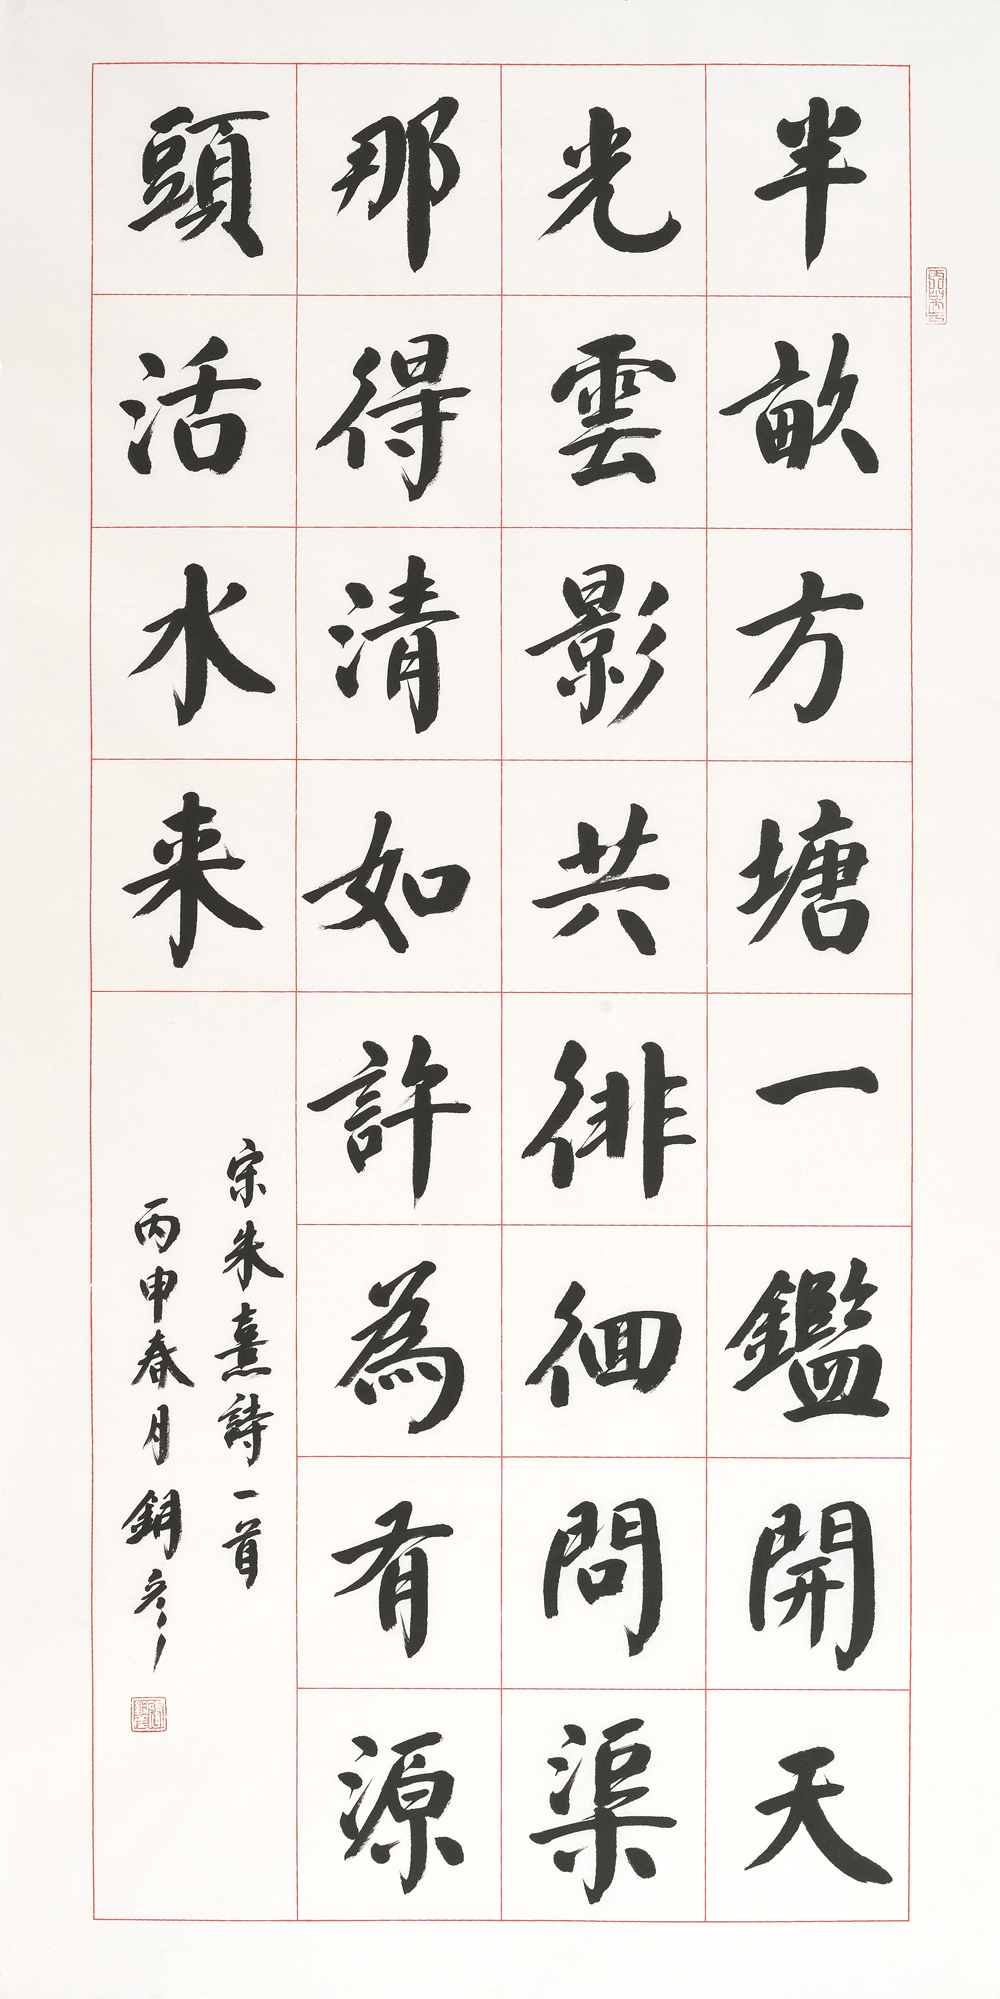 半畝方塘一鑑開天
光雲影共徘徊問渠
那得清如許為有源
頭活水来
宋朱熹詩一首
丙申春月銅彦